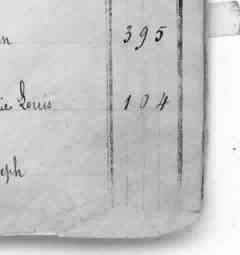 n 395
ie Louis 104
eph